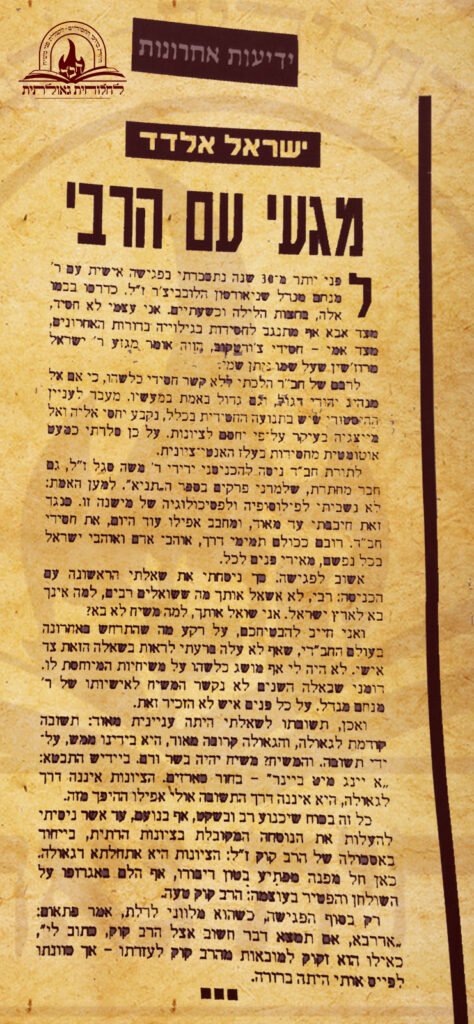 לחלוחית גאולתית
ידיעות אחרונות
ישראל אלדד
מגעי עם הרבי
לפני יותר מ־30 שנה נתכברתי בפגישה אישית עם ר'
מנחם מנדל שניאורסון הלובביצ'ר ז"ל. כדרכו בכמו
אלה, בחצות הלילה וכשעתיים. אני עצמי לא חסיד,
מצד אבא אף מתנגב לחסידות בגילוייה בדורות האחרונים,
מצד אמי – חסידי צ'ורטקוב, הווה אומר מגזע ר' ישראל
מרוז'שין שעל שמו ניתן שמי.
לרבם של חב"ד הלכתי ללא קשר חסידי כלשהו, כי אם אל
מנהיג יהודי דגול, וגם גדול באמת במעשיו. מעבר לעניין
ההיסטורי שיש בתנועה החסידית בכלל, נקבע יחסי אליה ואל
מייצגיה בעיקר על־פי יחסם לציונות. על כן סלדתי כמעט
אוטומטית מחסידות בעלז האנטי־ציונית.
לתורת חב"ד ניסה להכניסני ידידי ר' משה סגל ז"ל, גם
חבר מחתרת, שלמדני פרקים בספר ה„תניא". למען האמת:
לא נשביתי לפילוסופיה ולפסיכולוגיה של מישנה זו. כנגד
זאת חיבבתי עד מאוד, ומחבב אפילו עוד היום, את חסידי
חב"ד. רובם ככולם תמימי דרך, אוהבי אדם ואוהבי ישראל
בכל נפשם, מאירי פנים לכל.
אשוב לפגישה. כך ניסחתי את שאלתי הראשונה עם
הכניסה: רבי, לא אשאל אותך מה ששואלים רבים, למה אינך
בא לארץ ישראל. אני שואל אותך, למה משיח לא בא?
ואני חייב להבטיחכם, על רקע מה שהתרחש באחרונה
בעולם החב"די, שאף לא עלה בדעתי לראות בשאלה הזאת צד
אישי. לא היה לי אף מושג כלשהו על משיחיות המיוחסת לו.
דומני שבאלה השנים לא נקשר המשיח לאישיותו של ר'
מנחם מנדל. על כל פנים איש לא הזכיר זאת.
ואכן, תשובתו לשאלתי היתה עניינית מאוד: תשובה
קודמת לגאולה, והגאולה קרובה מאוד, היא בידינו ממש, על־
ידי תשובה. והמשיח? משיח יהיה בשר ודם. ביידיש התבטא:
„א יינג מיט ביינר" – בחור כארזים. הציונות איננה דרך
לגאולה, היא איננה דרך התשובה אולי אפילו ההיפך מזה.
כל זה בכוח שיכנוע רב ובשקט, אף בנועם, עד אשר ניסיתי
להעלות את הנוסחה המקובלת בציונות הדתית, בייחוד
באסכולה של הרב קוק ז"ל: הציונות היא אתחלתא דגאולה.
כאן חל מפנה מפתיע בטון דיבורו, אף הלם באגרופו על
השולחן והפטיר בעוצמה: הרב קוק טעה.
רק בסוף הפגישה, כשהוא מלווני לדלת, אמר פתאום:
„אדרבא, אם תמצא דבר חשוב אצל הרב קוק, כתוב לי",
כאילו הוא זקוק למובאות מהרב קוק לעזרתו – אך כוונתו
לפייס אותי היתה ברורה.